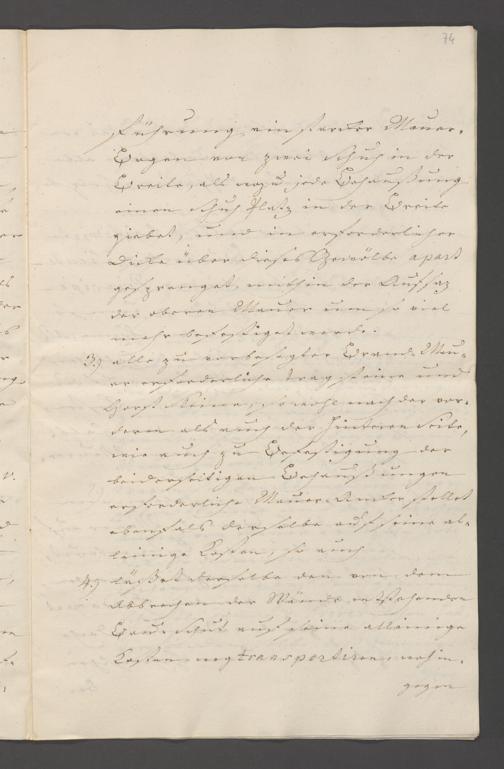 74
Führung ein starcker Mauer-
Bogen von zwei Schuh in der
Breite, als wozu jede Behaußung
einen Schuh Platz in der Breite
giebet, und in erforderlicher
Dicke über dieses Gewölbe apart
gesprenget, mithin der Aufsaz
der oberen Mauer um so viel
mehr befestiget werde.
3.) alle zu vorbesagter Brand-Mau-
er erforderliche Tragsteine und
sowohl nach der vor-
dern als auch der hinteren Seite,
wie auch zu Befestigung der
beiderseitigen Behaußungen
erforderliche Mauer-Anker stellet
ebenfals derselbe auf seine al-
leinige Kosten, so auch
4.) läßet derselbe den von dem
Abbrechen der Wände entstehenden
Bau-Schut auf seine alleinige
Kosten wegtransportiren, wohin-
gegen